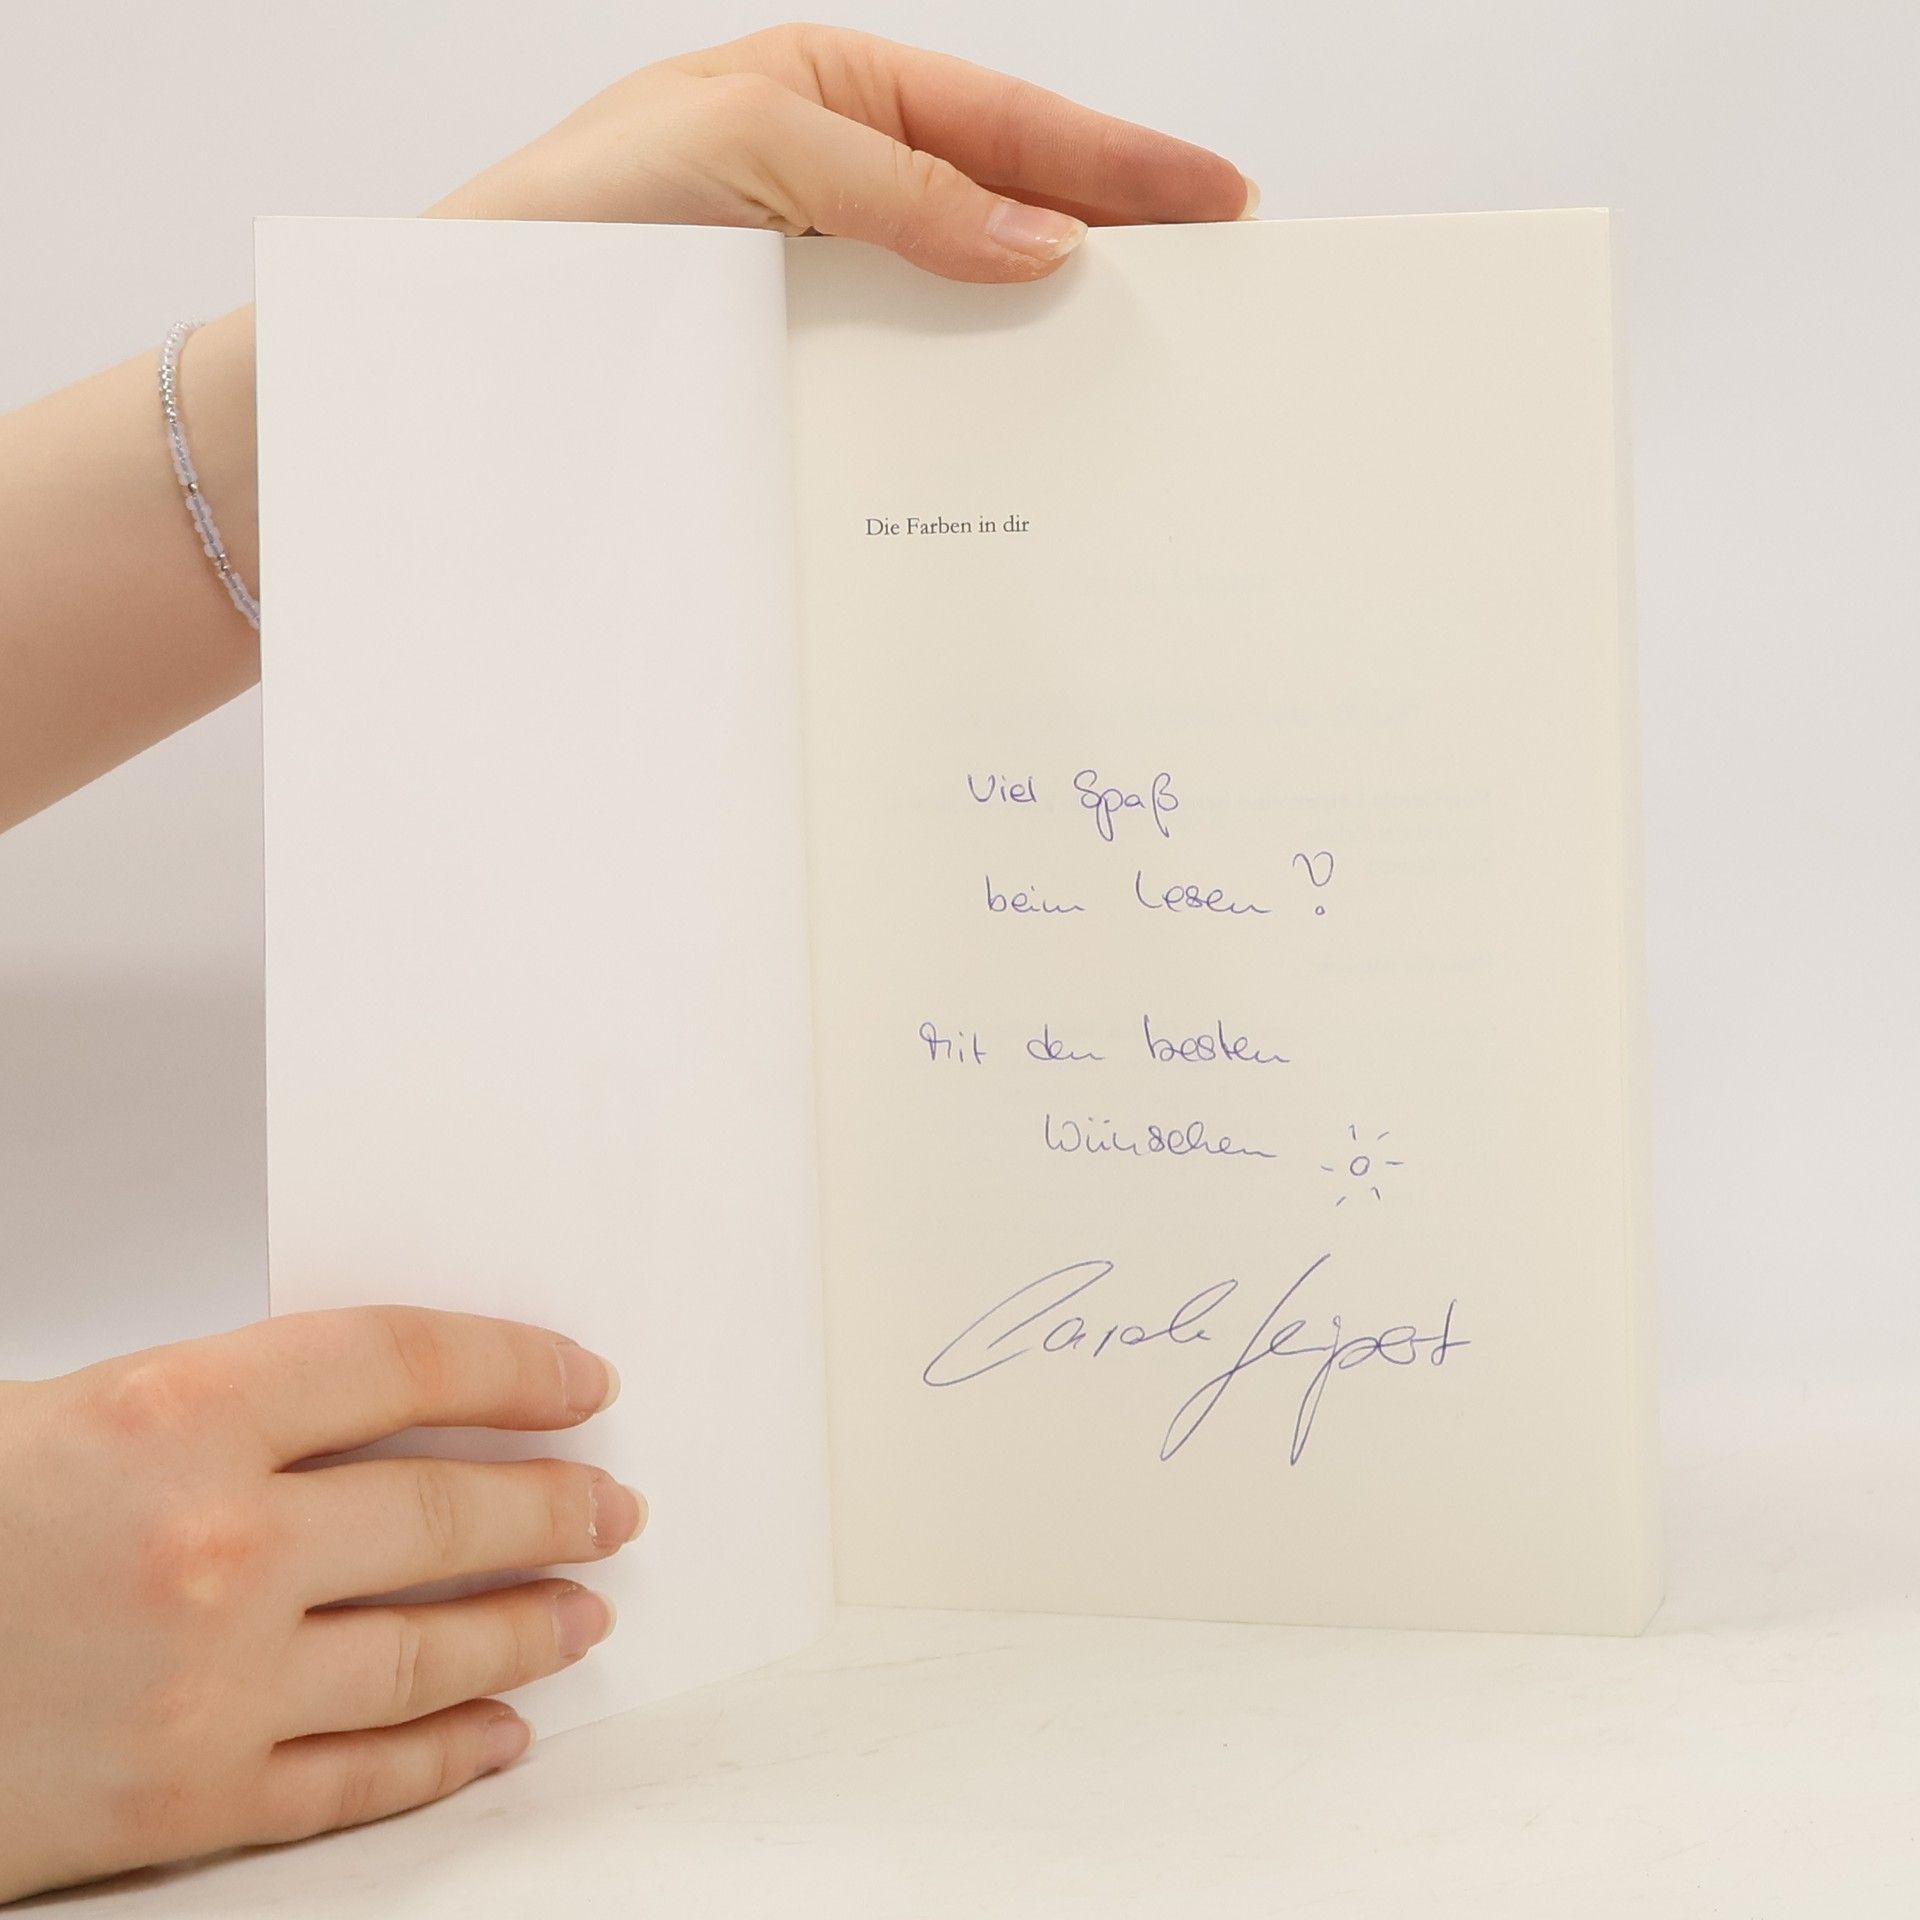 Die Farben in dir
Viel Spaß
beim Lesen!
Mit den besten
Wünschen
Carola Seipert